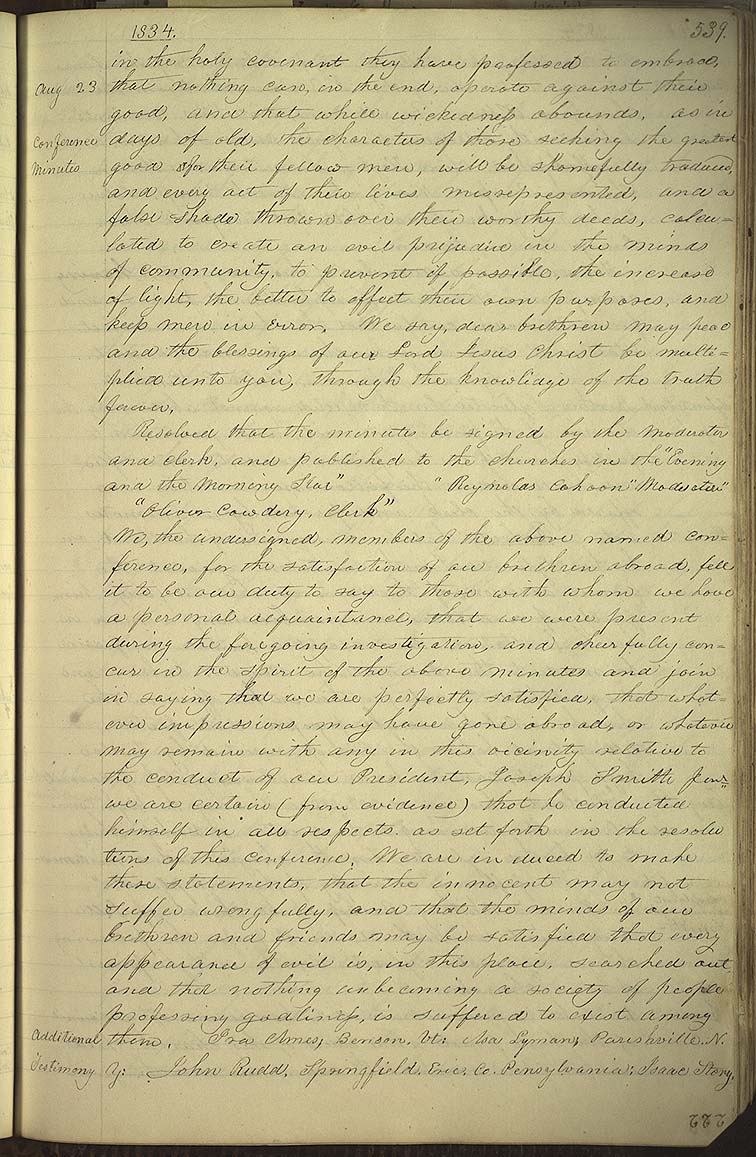 1834.
539.
in the holy covenant they have professed to embrace,
Aug 23
that nothing can, in the end, operate against their
good, and that while wickedness abounds, as in
Conference
days of old, the characters of those seeking the greatest
Minutes
good for their fellow men, will be shamefully traduced,
and every act of their lives missrepresented, and a
false shade thrown over their worthy deeds, calcu=
lated to create an evil prejudice in the minds
of community, to prevent if possible, the increase
of light, the better to affect their own purposes, and
keep men in error. We say, dear brethren may peac
and the blessings of our Lord Jesus Christ be multi=
plied unto you, through the knowledge of the truth
forever.
Resolved that the minutes be signed by the moderator
and clerk, and published to the churches in the "Evening
and the Morning Star" "Reynolds Cahoon" Moderator"
"Oliver Cowdery, Clerk"
We, the undersigned, members of the above named con=
ference, for the satisfaction of our brethren abroad, feel
it to be our duty to say to those with whom we have
a personal acquaintance, that we were present
during the foregoing investigation, and cheerfully con=
cur in the spirit of the above minutes and join
in saying that we are perfectly satisfied, that what=
ever impressions may have gone abroad, or whatever
may remain with any in this vicinity relative to
the conduct of our President, Joseph Smith Junr
we are certain (from evidence) that he conducted
himself in all respects as set forth in the resolu
tions of this conference. We are induced to make
these statements, that the innocent may not
suffer wrongfully, and that the minds of our
brethren and friends may be satisfied that every
appearance of evil is, in this place, searched out,
and that nothing unbecoming a society of people
professing godliness, is suffered to exist among
Additional
them. Ira Ames, Benson, Vt; Asa Lyman, Parishville, N.
Testimony
Y; John Rudd, Springfield, Erie, Co. Pensylvania; Isaac Story,
222